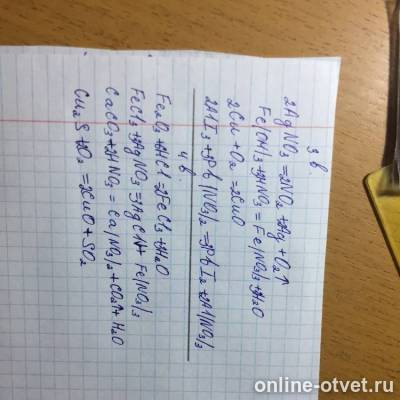 3 в.
2AgNO3 = 2NO2 + 2Ag + O2↑
Fe(OH)3 + 3HNO3 = Fe(NO3)3 + 3H2O
2Cu + O2 = 2CuO
2AlI3 + 3Pb(NO3)2 = 3PbI2 + 2Al(NO3)3
4 в.
Fe2O3 + 6HCl = 2FeCl3 + 3H2O
FeCl3 + 3AgNO3 = 3AgCl↓ + Fe(NO3)3
CaCO3 + 2HNO3 = Ca(NO3)2 + CO2↑ + H2O
Cu2S + 2O2 = 2CuO + SO2
online-otvet.ru